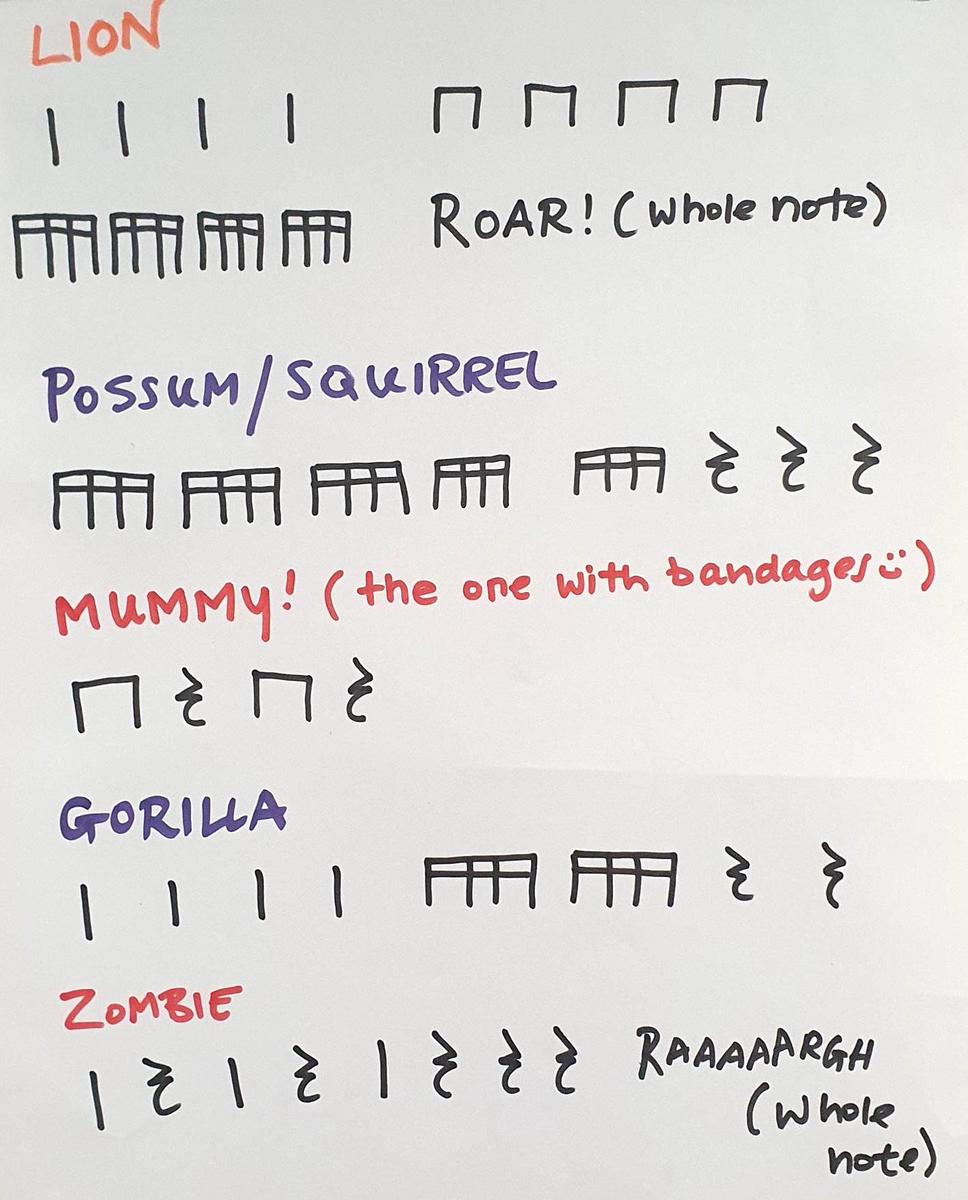 LION
ROAR! (whole note)
POSSUM/SQUIRREL
MUMMY! (the one with bandages)
GORILLA
ZOMBIE
RAAAAARGH
(whole
note)